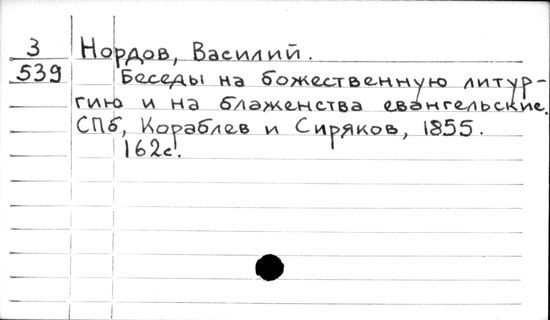 3
539
Нордов, Василий.
Беседы на божественную литур-
гию и на блаженства евангельские.
СПб, Кораблев и Сиряков, 1855.
162с.